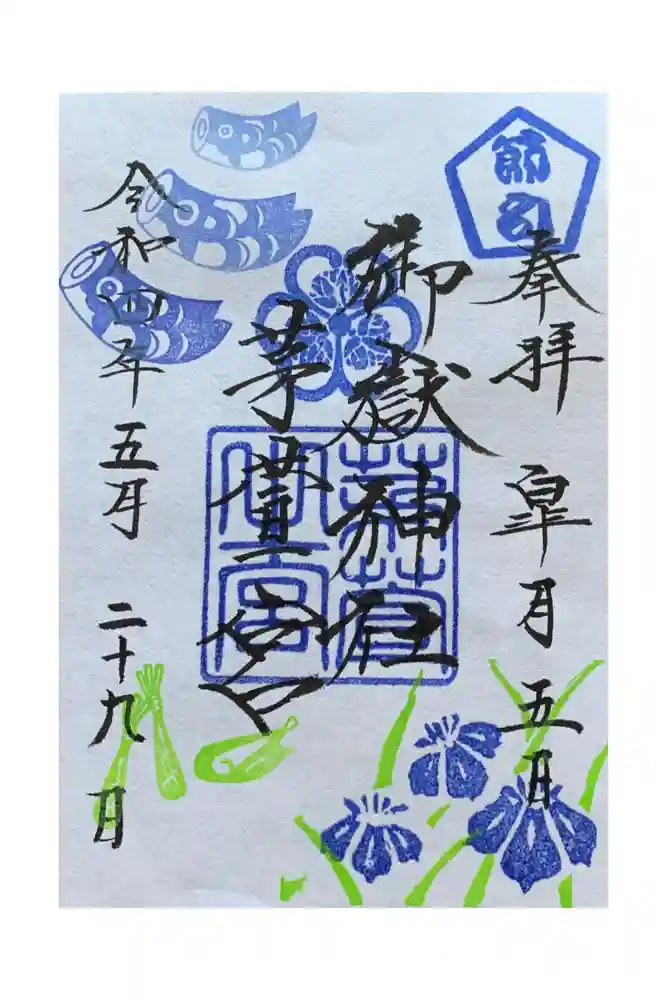 節句
奉拝 皐月 五月
御嶽神社
茅萱宮
令和四年五月二十九日